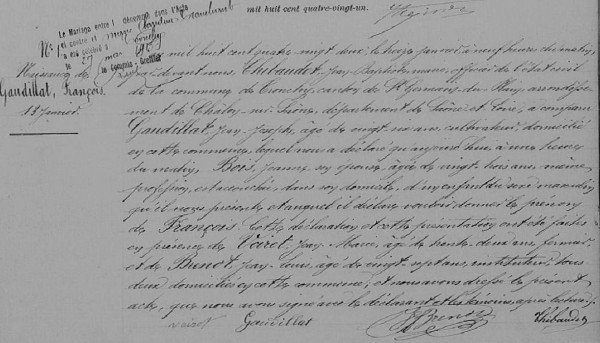 mil huit cent quatre-vingt-un.
Le Mariage entre l dénommé dans l'acte
ci contre et
a été célébré à
le
Nº 1
Naissance de
Gaudillat, François.
13 janvier.
mil huit cent quatre vingt deux, le treize janvier à neuf heures du matin,
par devant nous Thibaudet, Jean Baptiste officier de l'état civil
de la commune de Tronchy, canton de St Germain du Plain, arrondisse-
ment de Chalon-sur-Saône, département de Saône et Loire, a comparu
Gaudillat, Jean-Joseph, âgé de vingt ans, cultivateur, domicilié
en cette commune, lequel nous a déclaré qu'aujourd'hui, à une heure
du matin, Bois, Jeanne, son épouse, âgée de vingt trois ans, même
profession, est accouchée, dans son domicile, d'un enfant du sexe masculin
qu'il nous présente et auquel il déclare vouloir donner le prénom
de François. Cette déclaration et cette présentation ont été faites
en présence de Voiret, Jean Marie, âgé de trente deux ans, fermier
et de Benot, Jean Louis, âgé de vingt sept ans, instituteur; tous
deux domiciliés en cette commune, et nous avons dressé le présent
acte, que nous avons signé avec le déclarant et les témoins, après lecture.
voiret Gaudillat Thibaudet